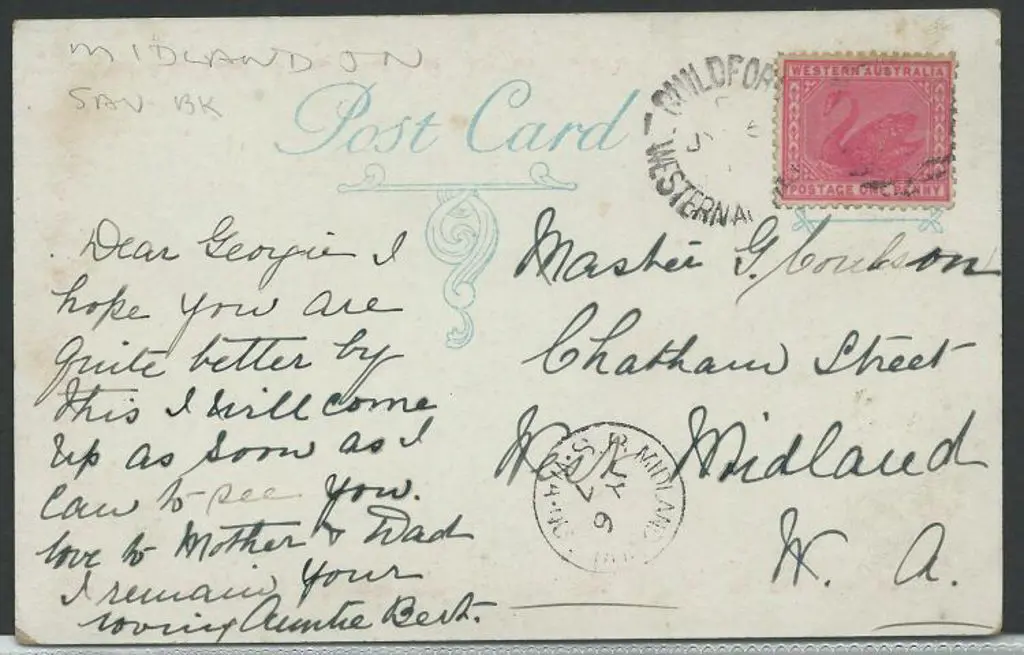 MIDLAND JN
SAV BK
Post Card
GUILDFOR
WESTERN AU
WESTERN AUSTRALIA
POSTAGE ONE PENNY
Dear Georgie I
hope you are
quite better by
this I will come
up as soon as I
can to see you.
love to Mother & Dad
I remain your
loving Auntie Bert.
Master G. Coulson
Chatham Street
West Midland
W. A.
MIDLAND